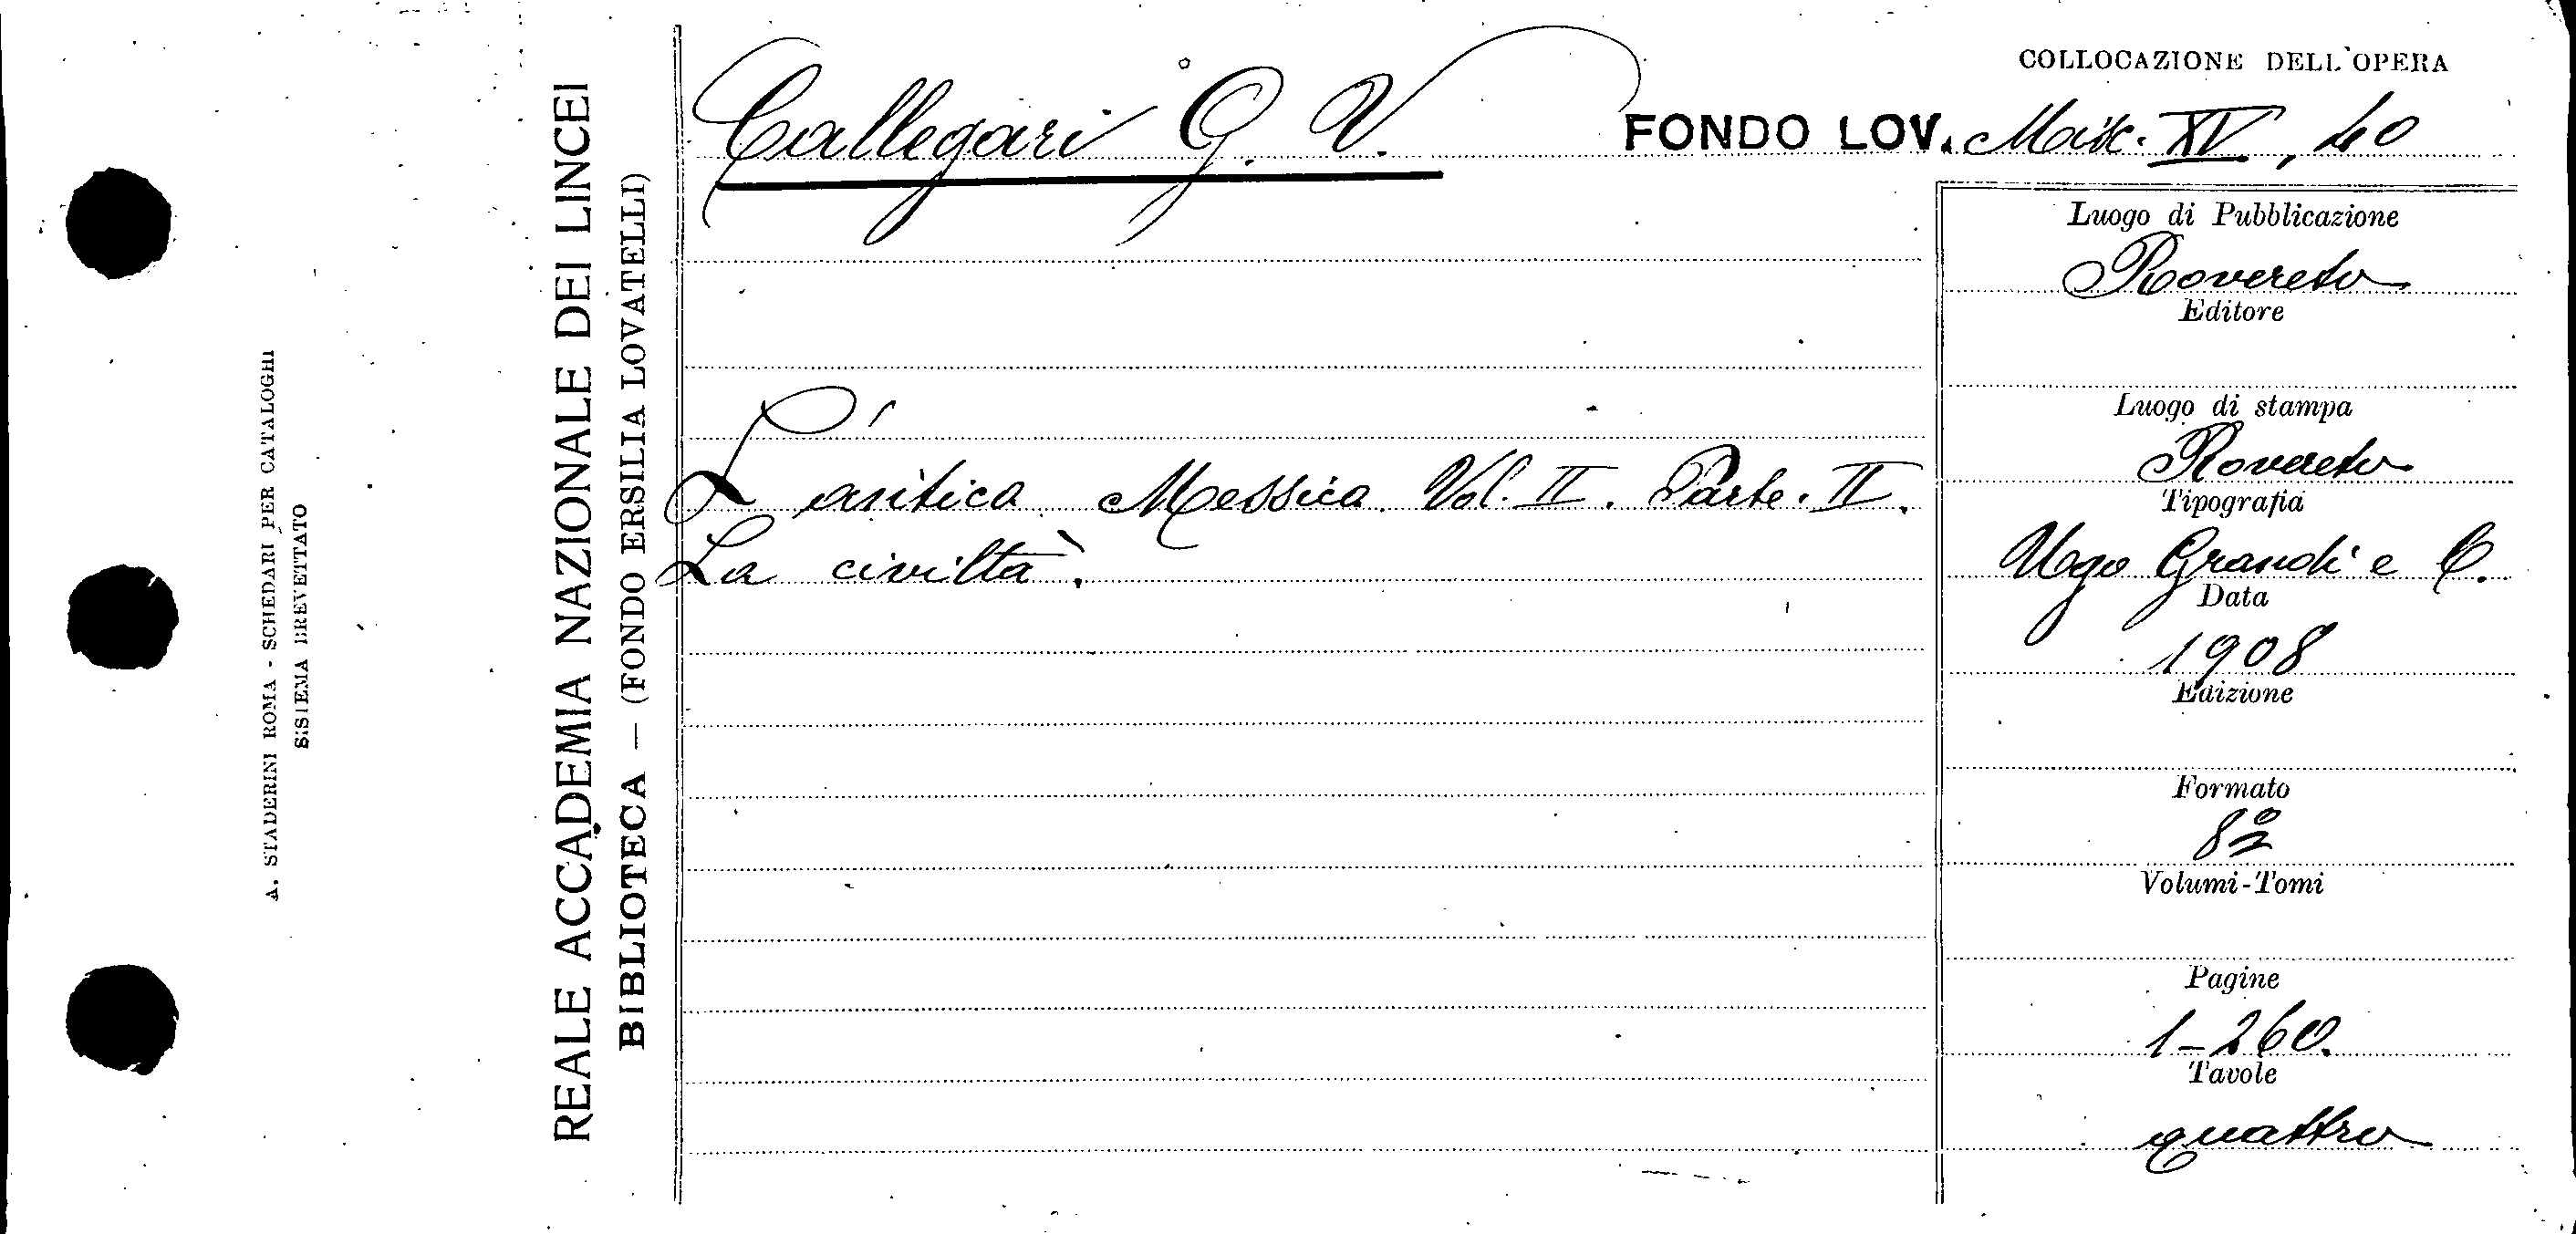 A. STADERINI ROMA - SCHEDARI PER CATALOGHI
SISTEMA BREVETTATO
REALE ACCADEMIA NAZIONALE DEI LINCEI
BIBLIOTECA — (FONDO ERSILIA LOVATELLI)
Callegari G. V.
COLLOCAZIONE DELL'OPERA
FONDO LOV. Misc. XV, 40
L'antica Messico Vol. II. Parte. II.
La civiltà.
Luogo di Pubblicazione
Rovereto
Editore
Luogo di stampa
Rovereto
Tipografia
Ugo Grandi e C.
Data
1908
Edizione
Formato
8º
Volumi-Tomi
Pagine
1-260.
Tavole
quattro